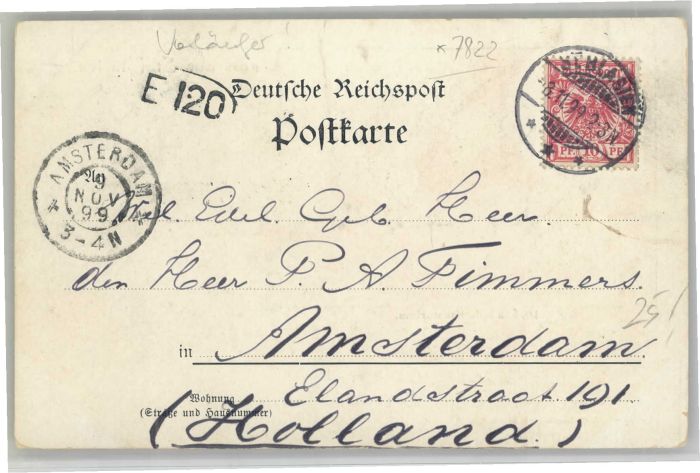 Vorläufer!
* 7822
E 120
Deutsche Reichspost
Postkarte
10 PF
AMSTERDAM
9
NOV
99
3-4N
Wel. Edel. Geb. Heer.
den Heer P. A. Timmers.
25!
in Amsterdam.
Wohnung
(Straße und Hausnummer)
Elandstraat 191.
(Holland.)